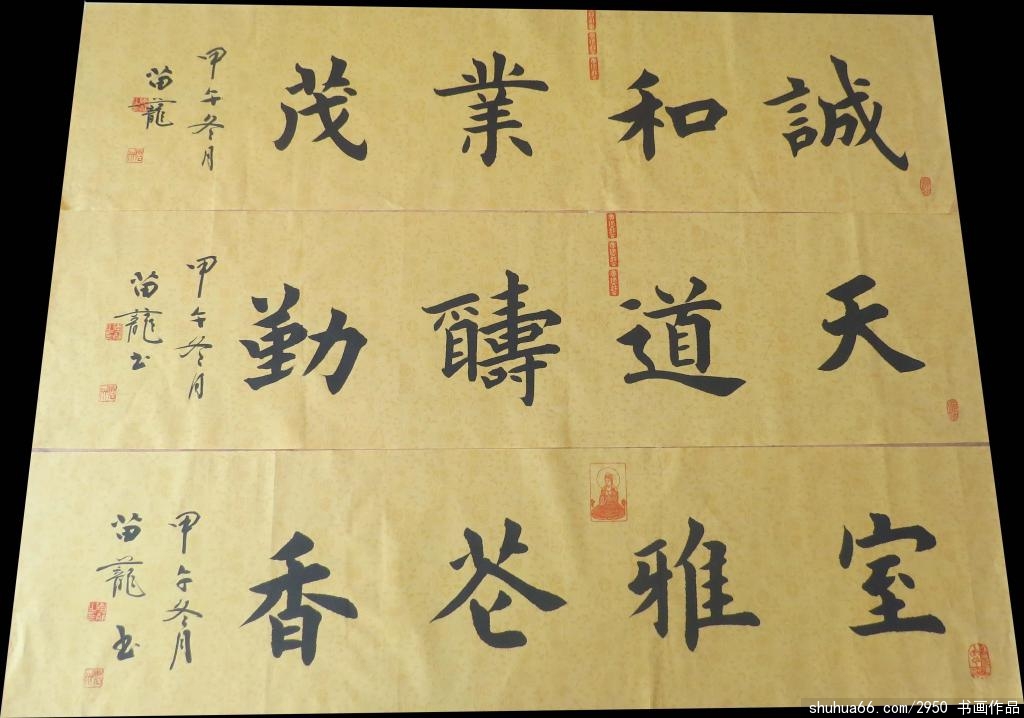 誠和業茂
甲午冬月
苗龍
天道酬勤
甲午冬月
苗龍书
室雅花香
甲午冬月
苗龍书
shuhua66.com/2950 书画作品